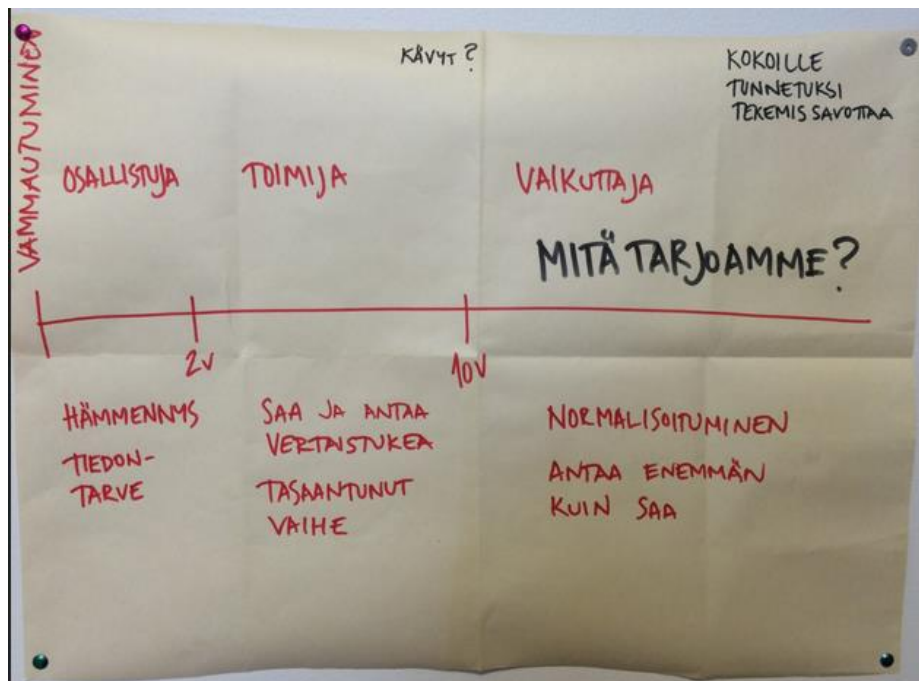 VAMMAUTUMINEN
KÄVYT?
KOKOILLE
TUNNETUKSI
TEKEMISSAVOTTAA
OSALLISTUJA
TOIMIJA
VAIKUTTAJA
MITÄ TARJOAMME?
2V
10V
HÄMMENNYS
TIEDON-
TARVE
SAA JA ANTAA
VERTAISTUKEA
TASAANTUNUT
VAIHE
NORMALISOITUMINEN
ANTAA ENEMMÄN
KUIN SAA